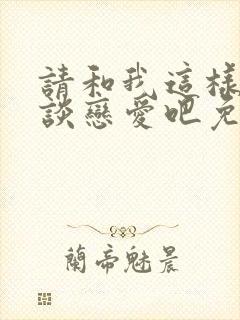 請和我這樣
談戀愛吧免
蘭帝魅晨